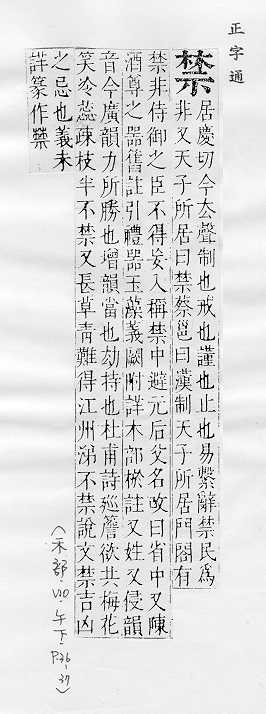 正字通
禁 居慶切今去聲制也戒也謹也止也易繫辭禁民爲
非又天子所居曰禁蔡邕曰漢制天子所居門閣有
禁非侍御之臣不得妄入稱禁中避元后父名改曰省中又陳
酒尊之器舊註引禮器玉藻義闕附詳木部棜註又姓又侵韻
音今廣韻力所勝也增韻當也劫持也杜甫詩巡簷欲共梅花
笑冷蕊疎枝半不禁又長草靑難得江州涕不禁說文禁吉凶
之忌也義未
詳篆作禁
(禾部, 午下, P36-37)